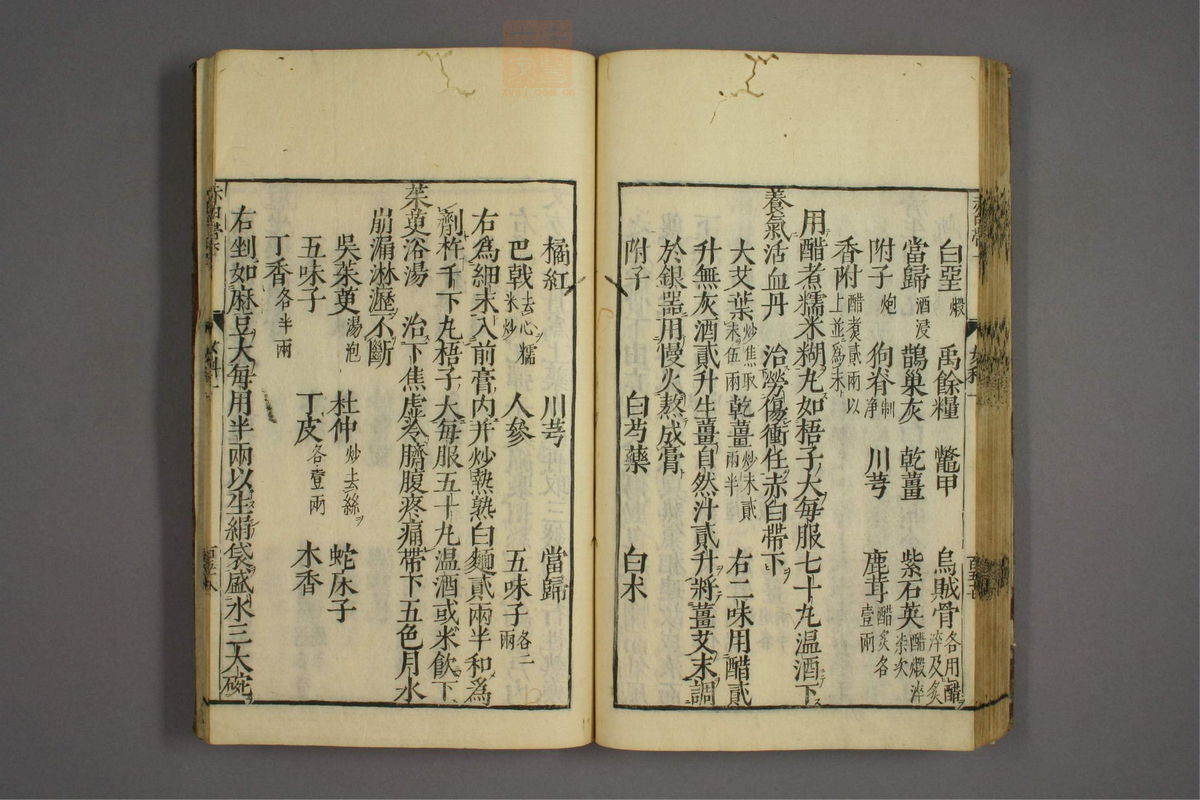 白堊煅 禹餘糧 鼈甲 烏賊骨各用醋淬及炙
當歸酒浸 鵲巢灰 乾薑 紫石英醋煅淬柒次
附子炮 狗脊制淨 川芎 鹿茸醋炙各壹兩
香附醋煑貳兩以上並爲末
用醋煮糯米糊丸如梧子大每服七十丸温酒下
養氣活血丹 治勞傷衝任赤白帶下
大艾葉炒焦取末伍兩 乾薑炒末貳兩半 右二味用醋貳
升無灰酒貳升生薑自然汁貳升將薑艾末調
於銀器用慢火熬成膏
附子 白芍藥 白朮
橘紅 川芎 當歸
巴戟去心糯米炒 人參 五味子各二兩
右爲細末入前膏内并炒熱熟白麵貳兩半和爲
劑杵千下丸梧子大每服五十丸温酒或米飮下
茱萸浴湯 治下焦虛冷臍腹疼痛帶下五色月水
崩漏淋瀝不斷
吳茱萸湯泡 杜仲炒去絲 蛇床子
五味子 丁皮各壹兩 木香
丁香各半兩
右剉如麻豆大每用半兩以生絹袋盛水三大碗